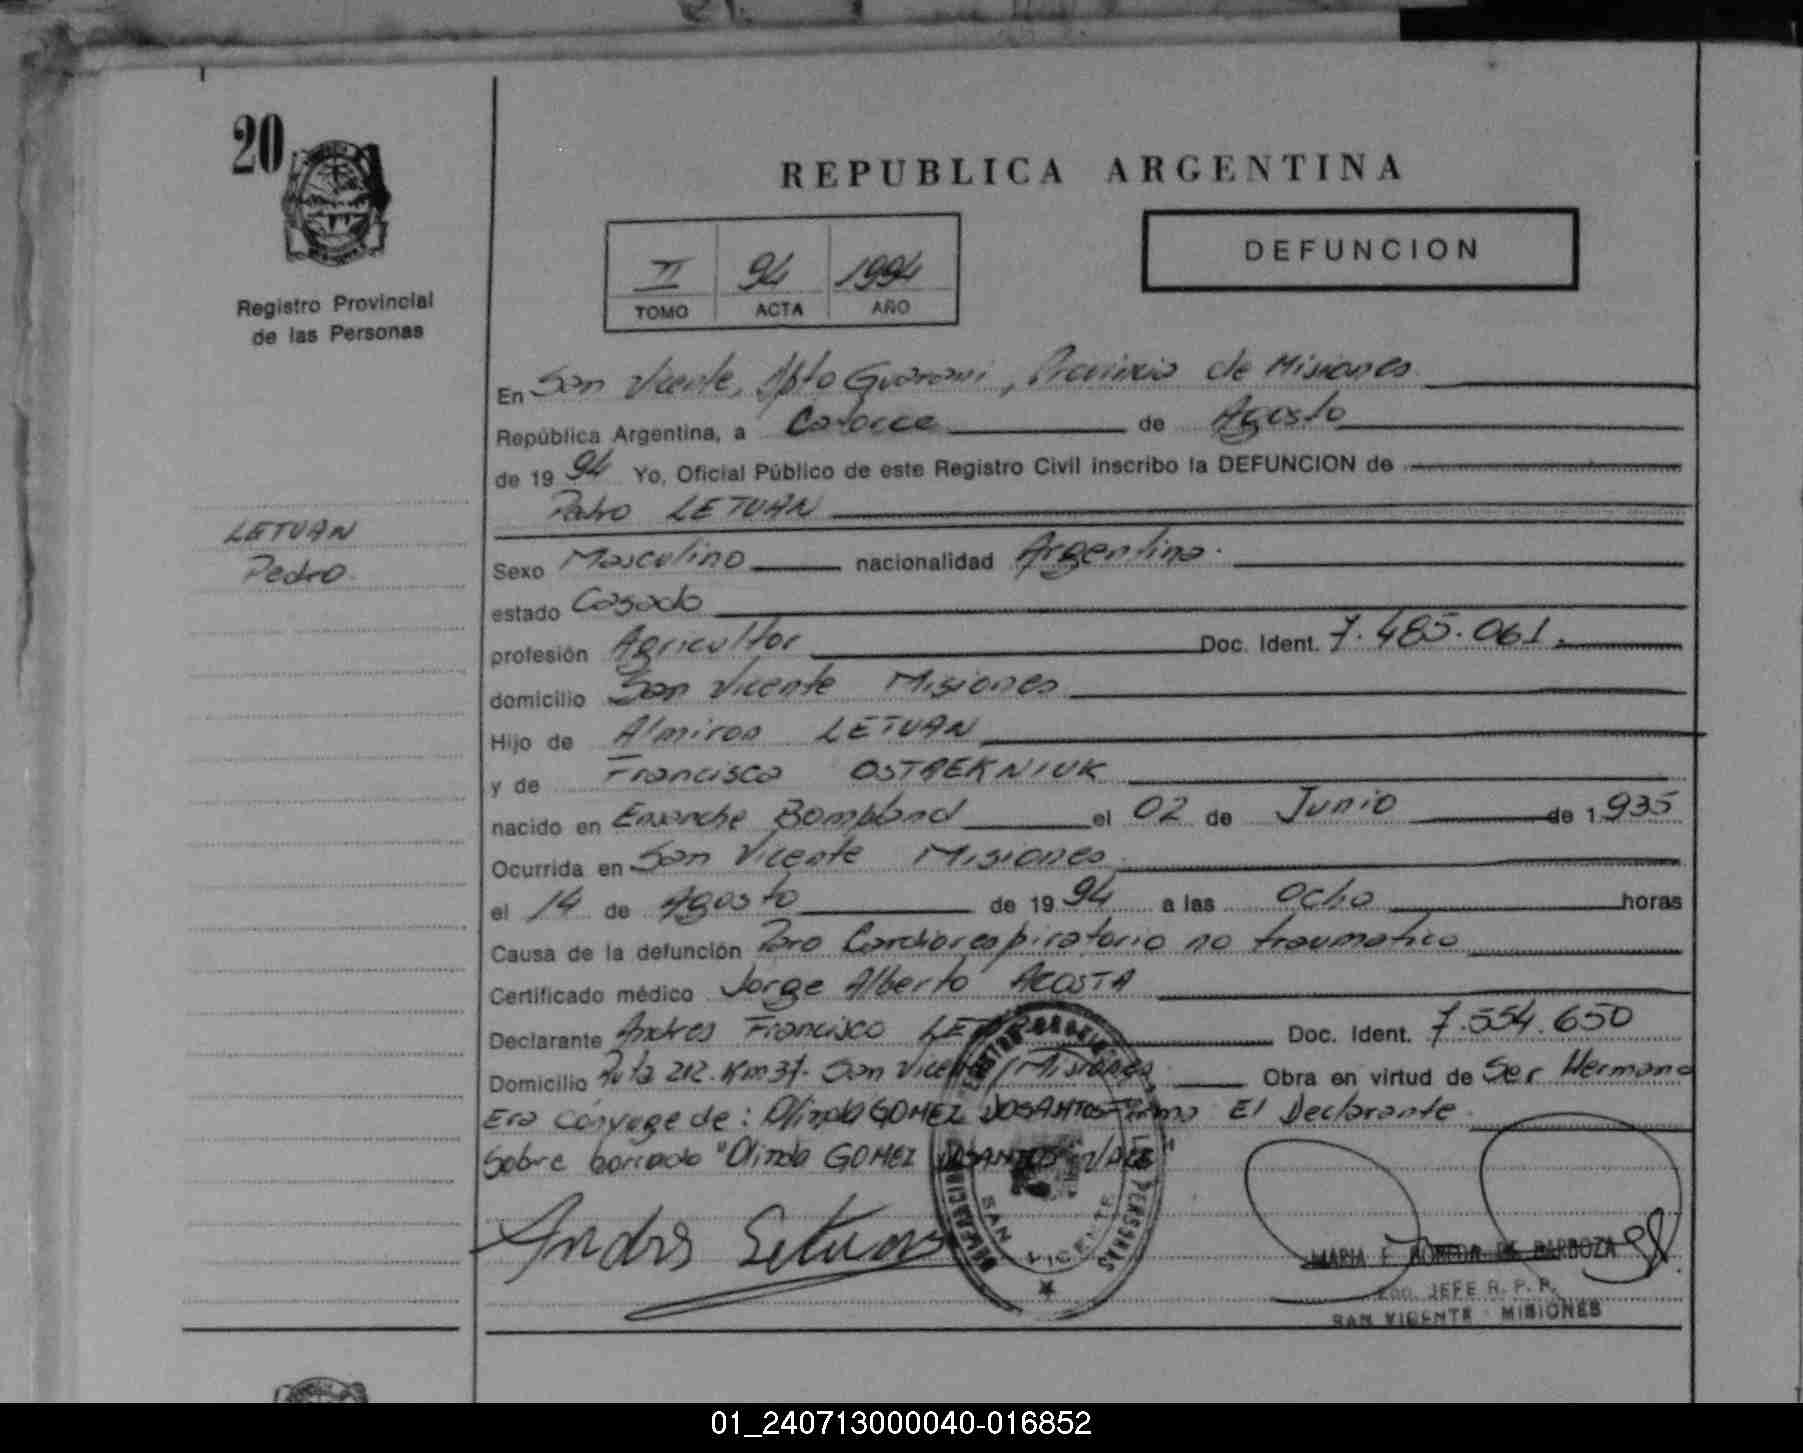 20
REPUBLICA ARGENTINA
DEFUNCION
II 94 1994
TOMO ACTA AÑO
Registro Provincial
de las Personas
En San Vicente, Dpto Guarani, Provincia de Misiones
República Argentina, a Catorce de Agosto
de 19 94 Yo, Oficial Público de este Registro Civil inscribo la DEFUNCION de
Pedro LETUAN
LETUAN
Pedro
Sexo Masculino nacionalidad Argentina
estado Casado
profesión Agricultor Doc. Ident. 7.485.061.
domicilio San Vicente Misiones
Hijo de Almiron LETUAN
y de Francisca
nacido en Ensanche Bompland el 02 de Junio de 1.935
Ocurrida en San Vicente Misiones
el 14 de Agosto de 19 94 a las ocho horas
Causa de la defunción Paro Cardiorespiratorio no traumatico
Certificado médico Jorge Alberto ACOSTA
Declarante Andres Francisco Doc. Ident. 7.554.650
Domicilio Ruta 212. Km 37. San Vicente Misiones Obra en virtud de Ser Hermano
Era Cónyuge de: Olinda GOMEZ DOSANTOS Firma El Declarante
Sobre borrado "Olinda GOMEZ DOSANTOS" VALE
Andrés Letuan
SAN VICENTE
MARIA F. DE BARBOZA
JEFE R. P. P.
SAN VICENTE - MISIONES
01_240713000040-016852